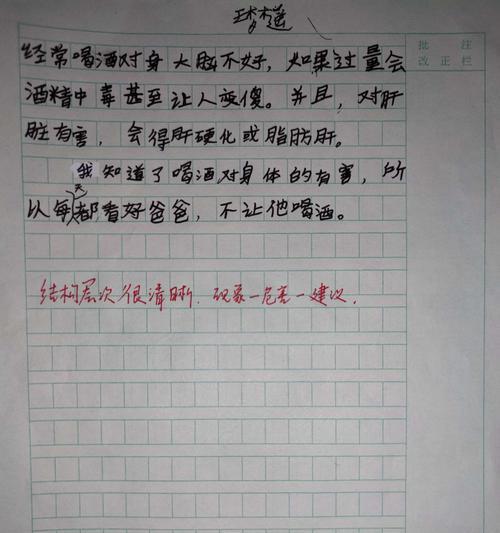 王梦遥
批 注
改正栏
经常喝酒对身大脑不好，如果过量会
酒精中毒甚至让人变傻。并且，对肝
脏有害，会得肝硬化或脂肪肝。
我知道了喝酒对身体的有害，所
以每天都看好爸爸，不让他喝酒。
结构层次很清晰．现象－危害－建议．